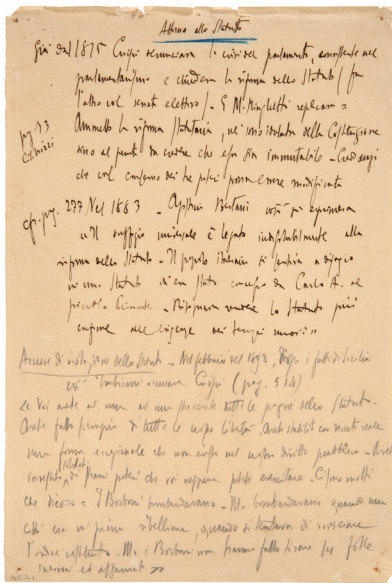 Attorno allo Statuto
Già dal 1875 Crispi denunciava la crisi del parlamento, consistente nel
parlamentarismo e chiedeva la riforma dello Statuto (fra
l'altro col senato elettivo). E M. Minghetti replicava =
Ammetto la riforma statutaria, né sono idolatra della Costituzione
sino al punto da credere che essa sia immutabile - Credo anzi
che col consenso dei tre poteri possa essere modificata
pg. 13
cfr. pg. 277 Nel 1883 - Agostino Bertani così si esprimeva
« Il suffragio universale è legato indissolubilmente alla
riforma dello Statuto - Il popolo italiano si sentiva a disagio
in uno Statuto di un Stato concesso da Carlo A. al
piccolo Piemonte - Bisognava rendere lo Statuto più
conforme alle esigenze dei tempi nuovi »
Accuse di violazione dello Statuto - Nel febbraio del 1893, dopo i fatti di Sicilia
così Imbriani accusava Crispi (pag. 514)
Le Voi avete ad una ad una stracciate tutte le pagine dello Statuto -
Avete fatto scempio di tutte le nostre libertà. Avete stabilito
una forma eccezionale che non esiste nel nostro diritto pubblico - Avete
di pieni poteri che voi neppure potete esercitare. Ci sono molti
che dicono = I Borboni bombardavano - Ma bombardavano quando una
città era in piena ribellione, quando si tentava di rovesciare
l'ordine costituito. Ma i Borboni non hanno fatto tirare su folle
inermi ed affamate »